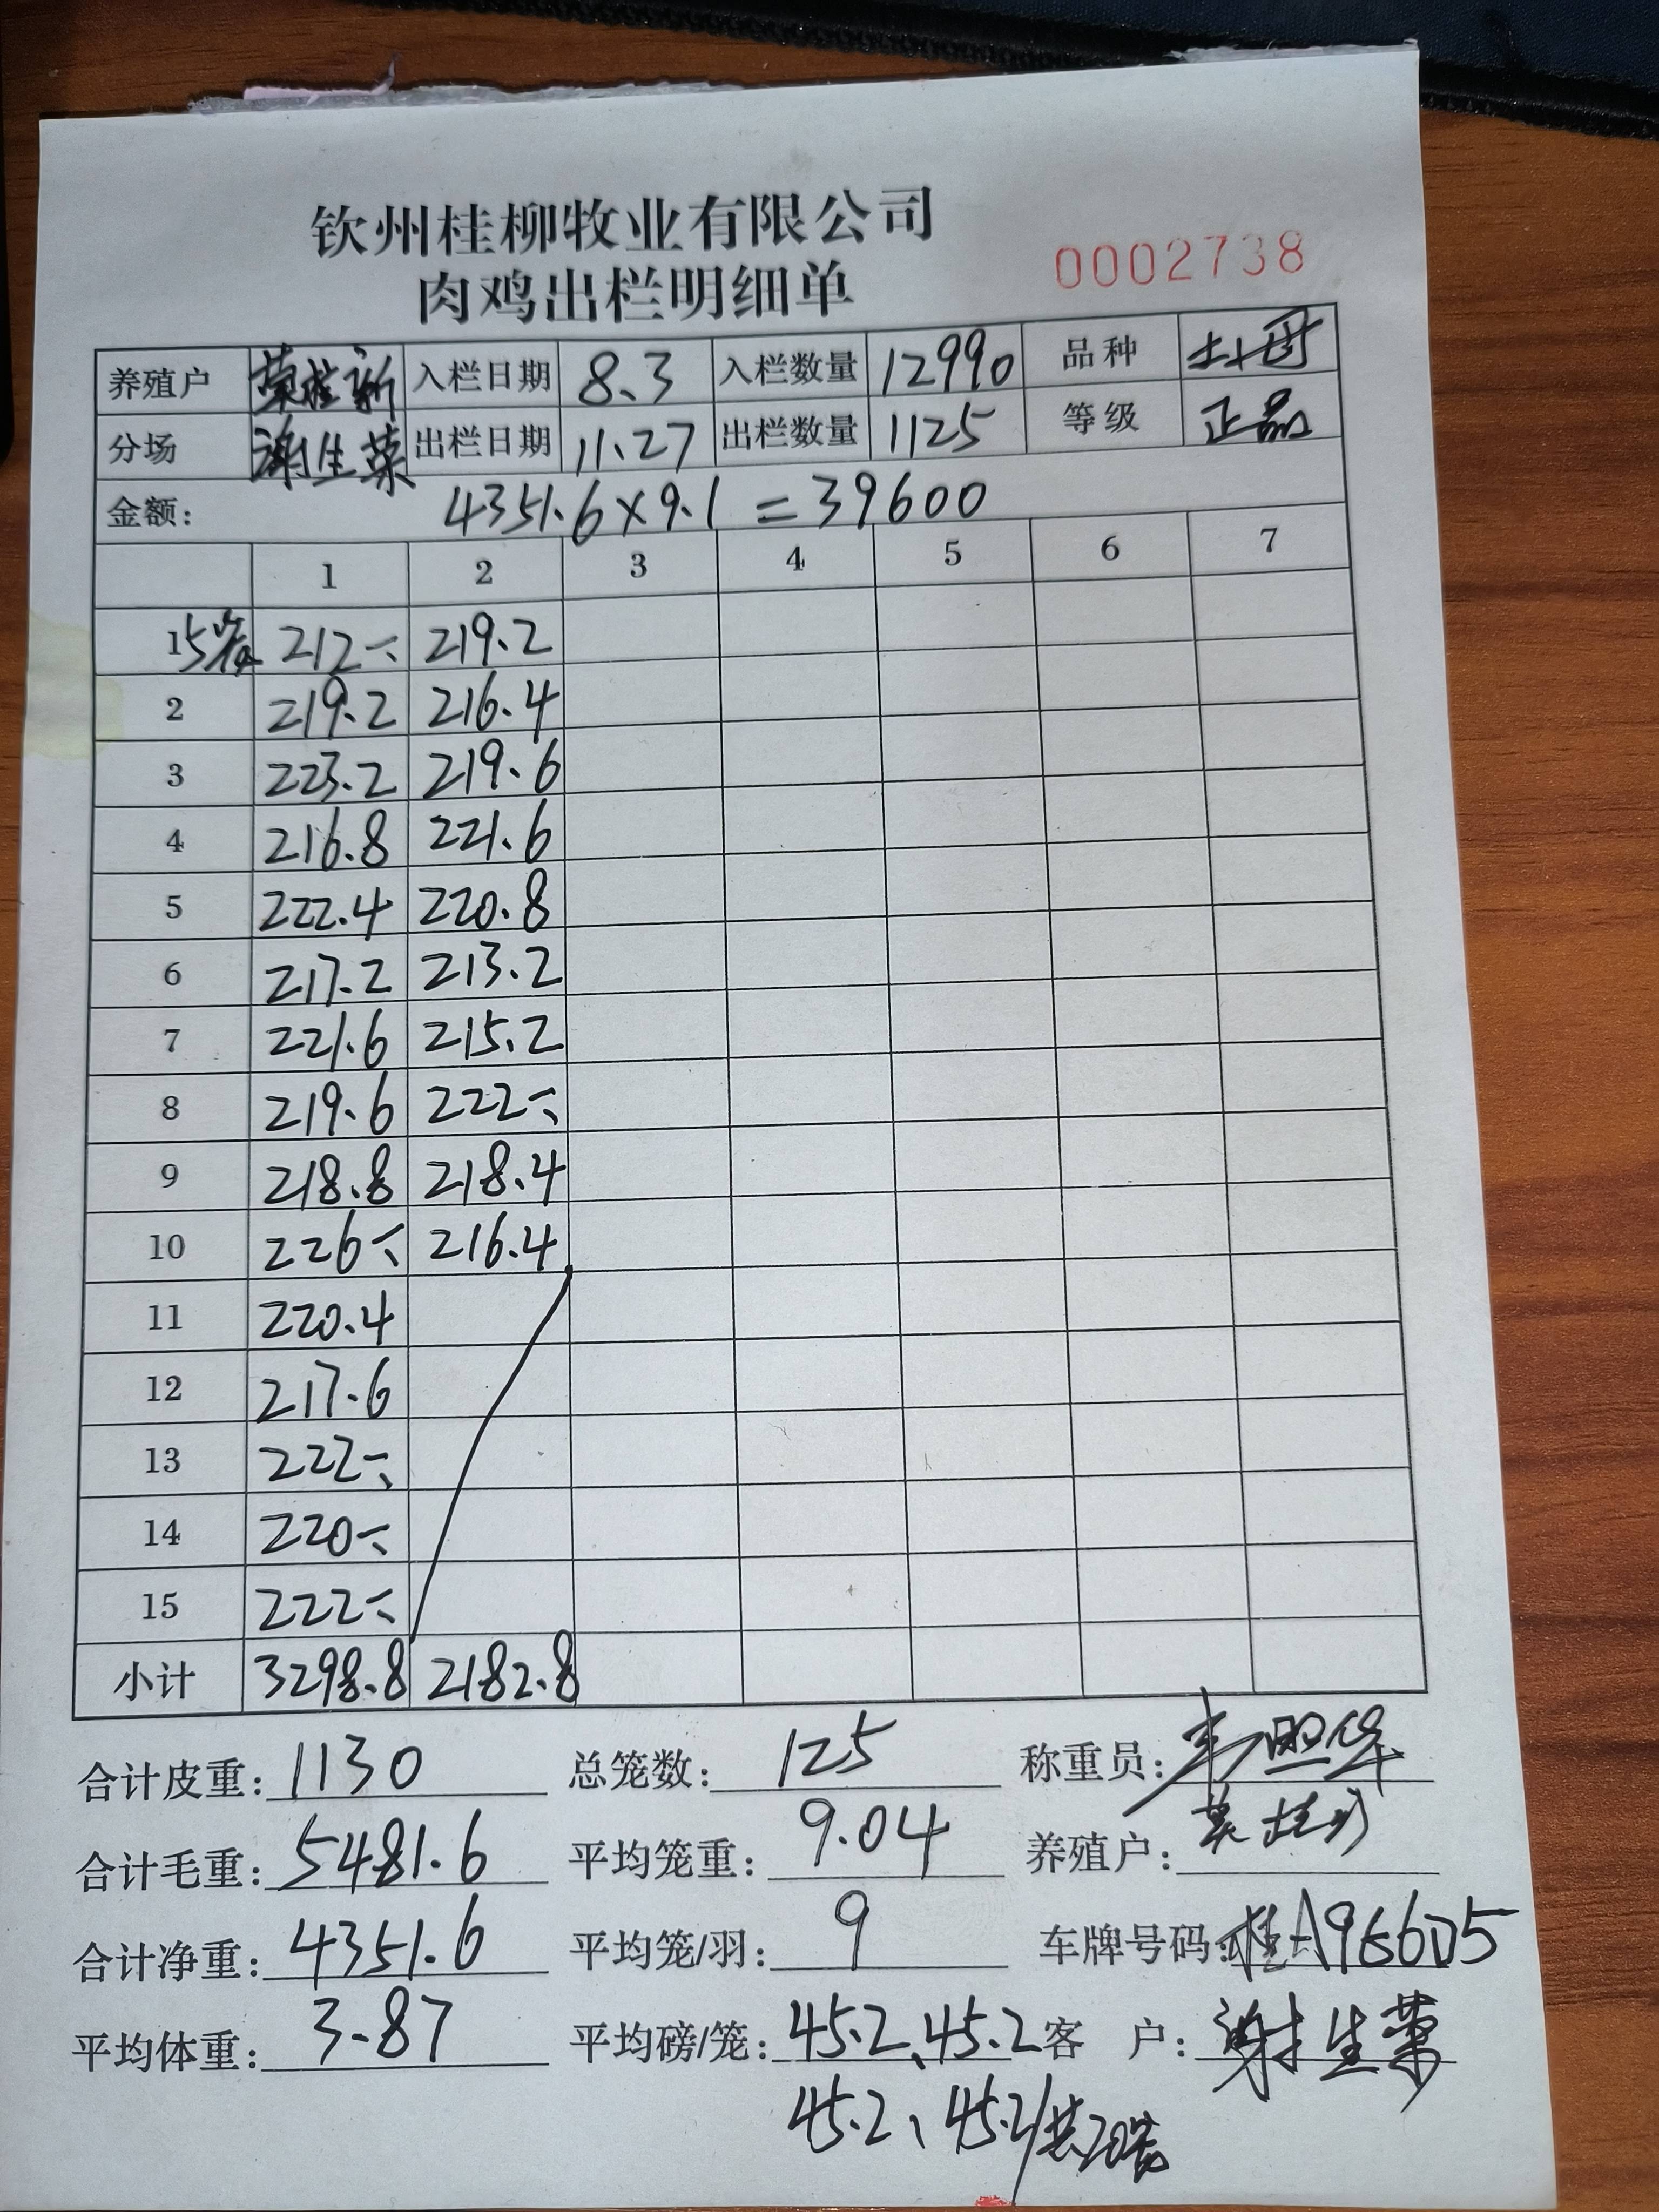 钦州桂柳牧业有限公司
肉鸡出栏明细单
0002738
养殖户 入栏日期 8.3 入栏数量 12990 品种
分场 谢生荣 出栏日期 11.27 出栏数量 1125 等级 正品
金额: 4351.6×9.1=39600
1 2 3 4 5 6 7
1 5笼 212 219.2
2 219.2 216.4
3 223.2 219.6
4 216.8 221.6
5 222.4 220.8
6 217.2 213.2
7 221.6 215.2
8 219.6 222
9 218.8 218.4
10 226 216.4
11 220.4
12 217.6
13 222
14 220
15 222
小计 3298.8 2182.8
合计皮重: 1130 总笼数: 125 称重员:
合计毛重: 5481.6 平均笼重: 9.04 养殖户:
合计净重: 4351.6 平均笼/羽: 9 车牌号码: 桂A966D5
平均体重: 3.87 平均磅/笼: 45.2、45.2 客户: 谢生荣
45.2、45.2/共20笼